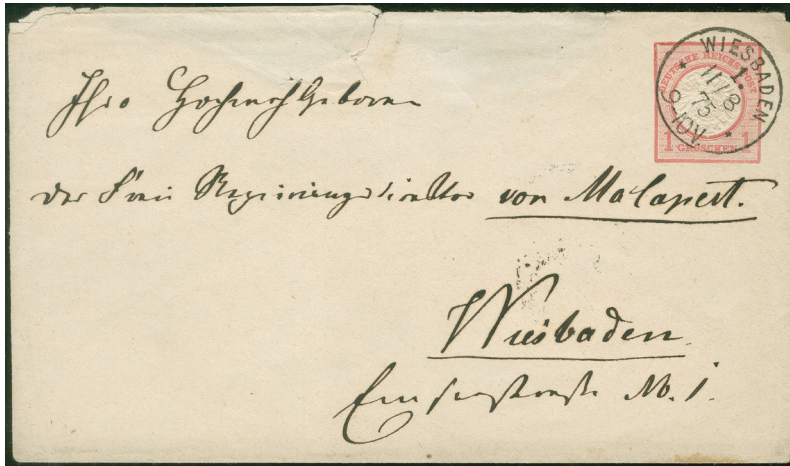 WIESBADEN
1.
11/8
75
9-10V.
DEUTSCHE REICHSPOST
1 GROSCHEN 1
Ihro Hochwohlgeboren
der Frau Regierungsdirektor von Malapert.
Wiesbaden
Emserstraße No. 1.